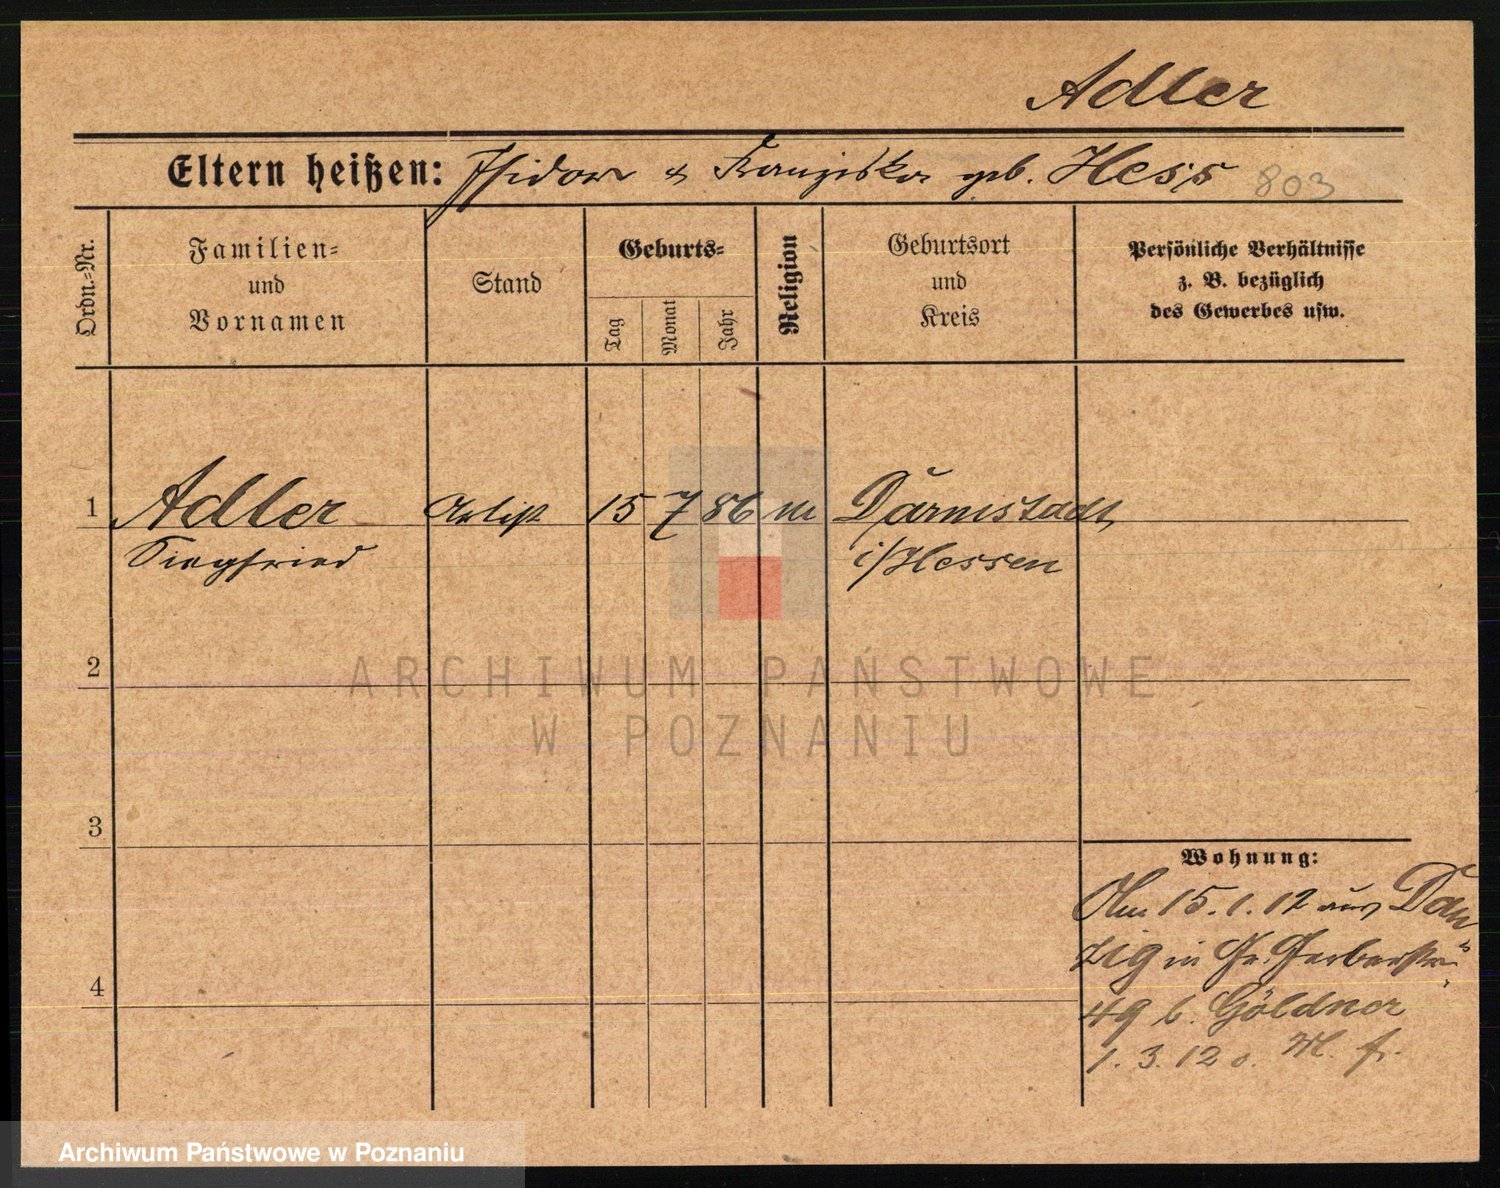 Adler
Eltern heißen: Isidor & Franziska geb. Hess 803
Ordn.=Nr.
Familien=
und
Vornamen
Stand
Geburts=
Tag
Monat
Jahr
Religion
Geburtsort
und
Kreis
Persönliche Verhältnisse
z. B. bezüglich
des Gewerbes usw.
1 Adler Artist 15 7 86 m Darmstadt
Siegfried i/Hessen
2
3
4
Wohnung:
Am 15.1.12 aus Dan
zig in Gr. Gerberstr.
49 b. Göldner
1.3.12 o.
ARCHIWUM PAŃSTWOWE
W POZNANIU
Archiwum Państwowe w Poznaniu